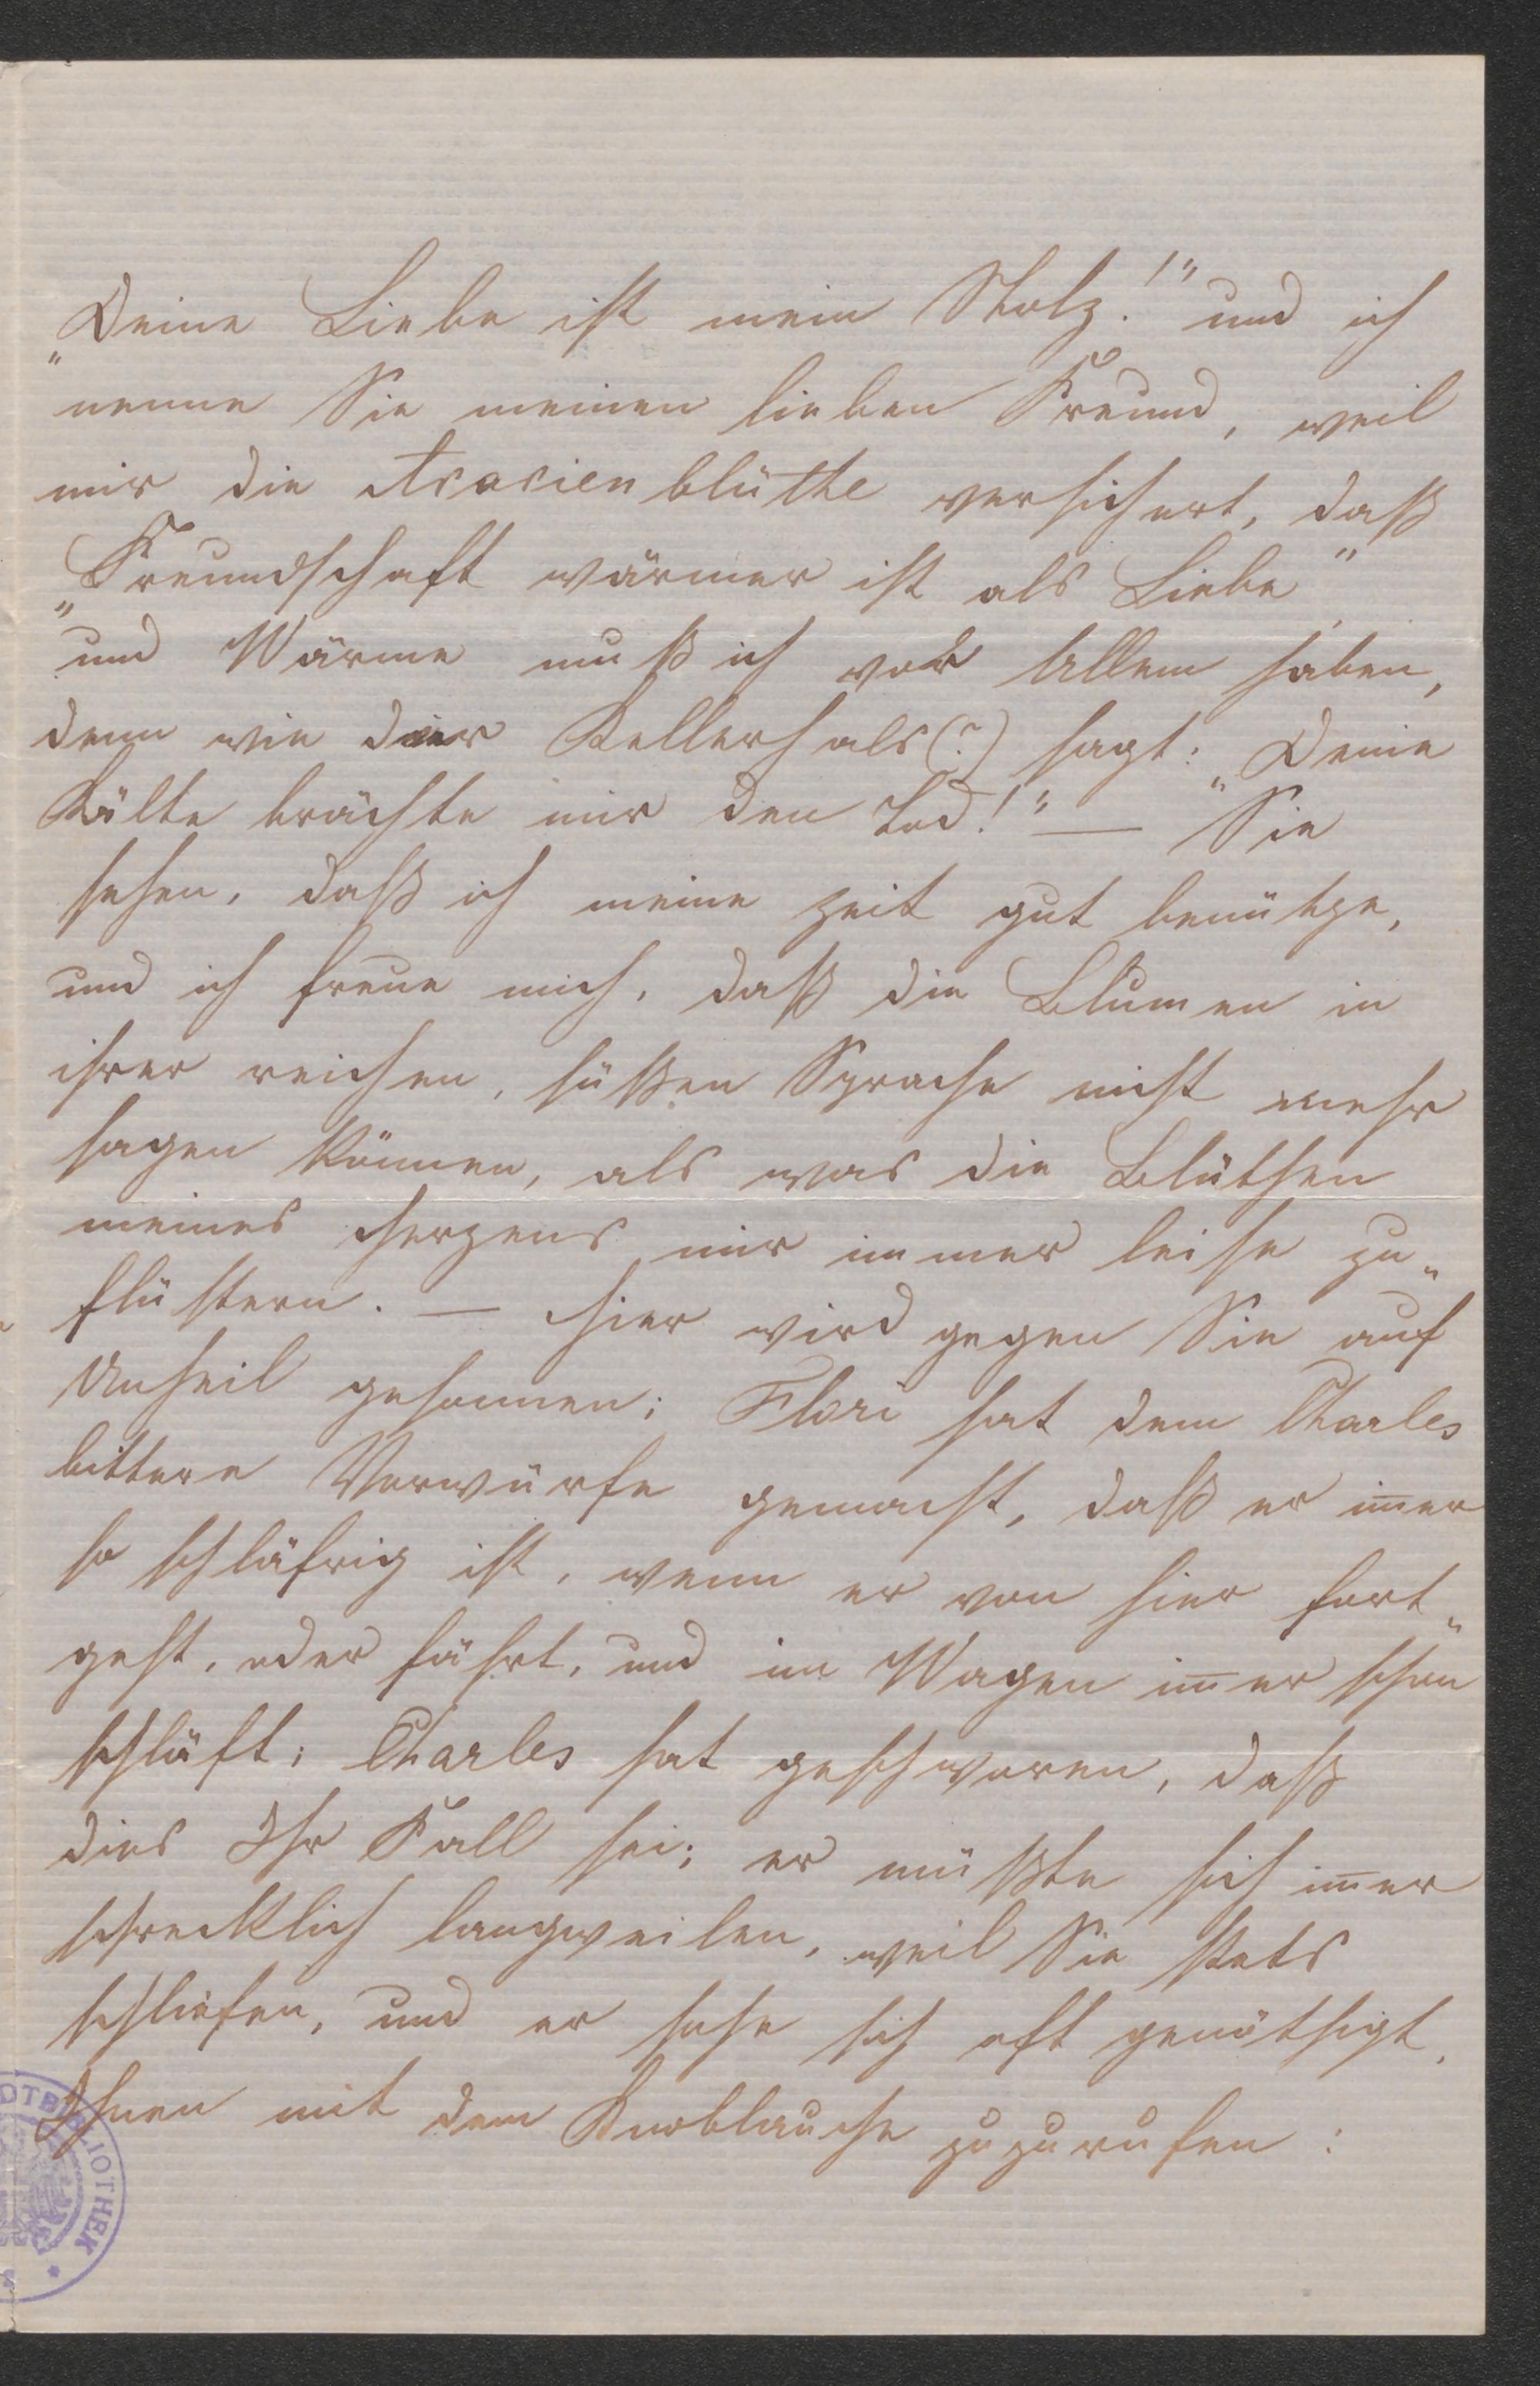 „Deine Liebe ist mein Stolz!“ und ich
nenne Sie meinen lieben Freund, weil
mir die Acacienblüthe versichert, daß
„Freundschaft wärmer ist als Liebe“
und Wärme muß ich vor Allem haben,
denn wie der Kellerhals(?) sagt: „Deine
Kälte brächte mir den Tod!“ — Sie
sehen, daß ich meine Zeit gut benütze,
und ich freue mich, daß die Blumen in
ihrer reichen, süßen Sprache nicht mehr
sagen können, als was die Blüthen
meines Herzens mir immer leise zu„
flüstern. — Hier wird gegen Sie auf
Unheil gesonnen; Flori hat dem Charles
bittere Vorwürfe gemacht, daß er im̅er
so schläfrig ist, wenn er von hier fort„
geht, oder fährt, und im Wagen im̅er schon
schläft; Charles hat geschworen, daß
dies Ihr Fall sei; er müßte sich im̅er
schrecklich langweilen, weil Sie stets
schliefen, und er sehe sich oft genöthigt,
Ihnen mit dem Knoblauche zuzurufen:
DTBIBLIOTHEK